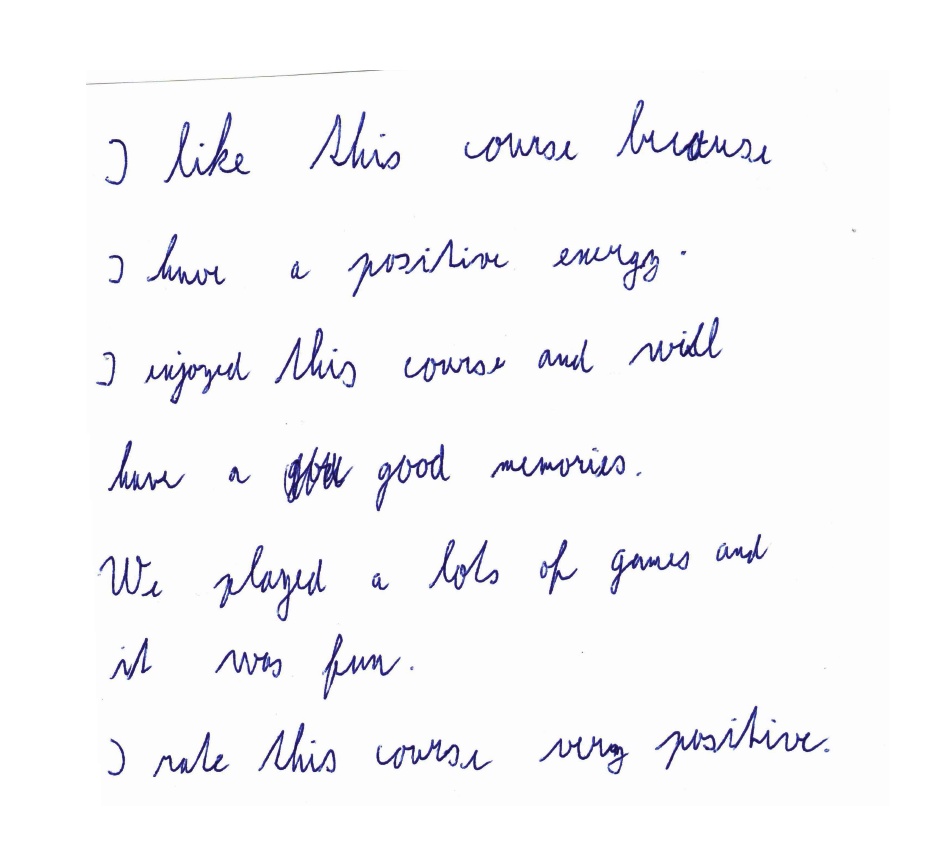 I like this course because
I have a positive energy.
I enjoyed this course and will
have a good memories.
We played a lots of games and
it was fun.
I rate this course very positive.